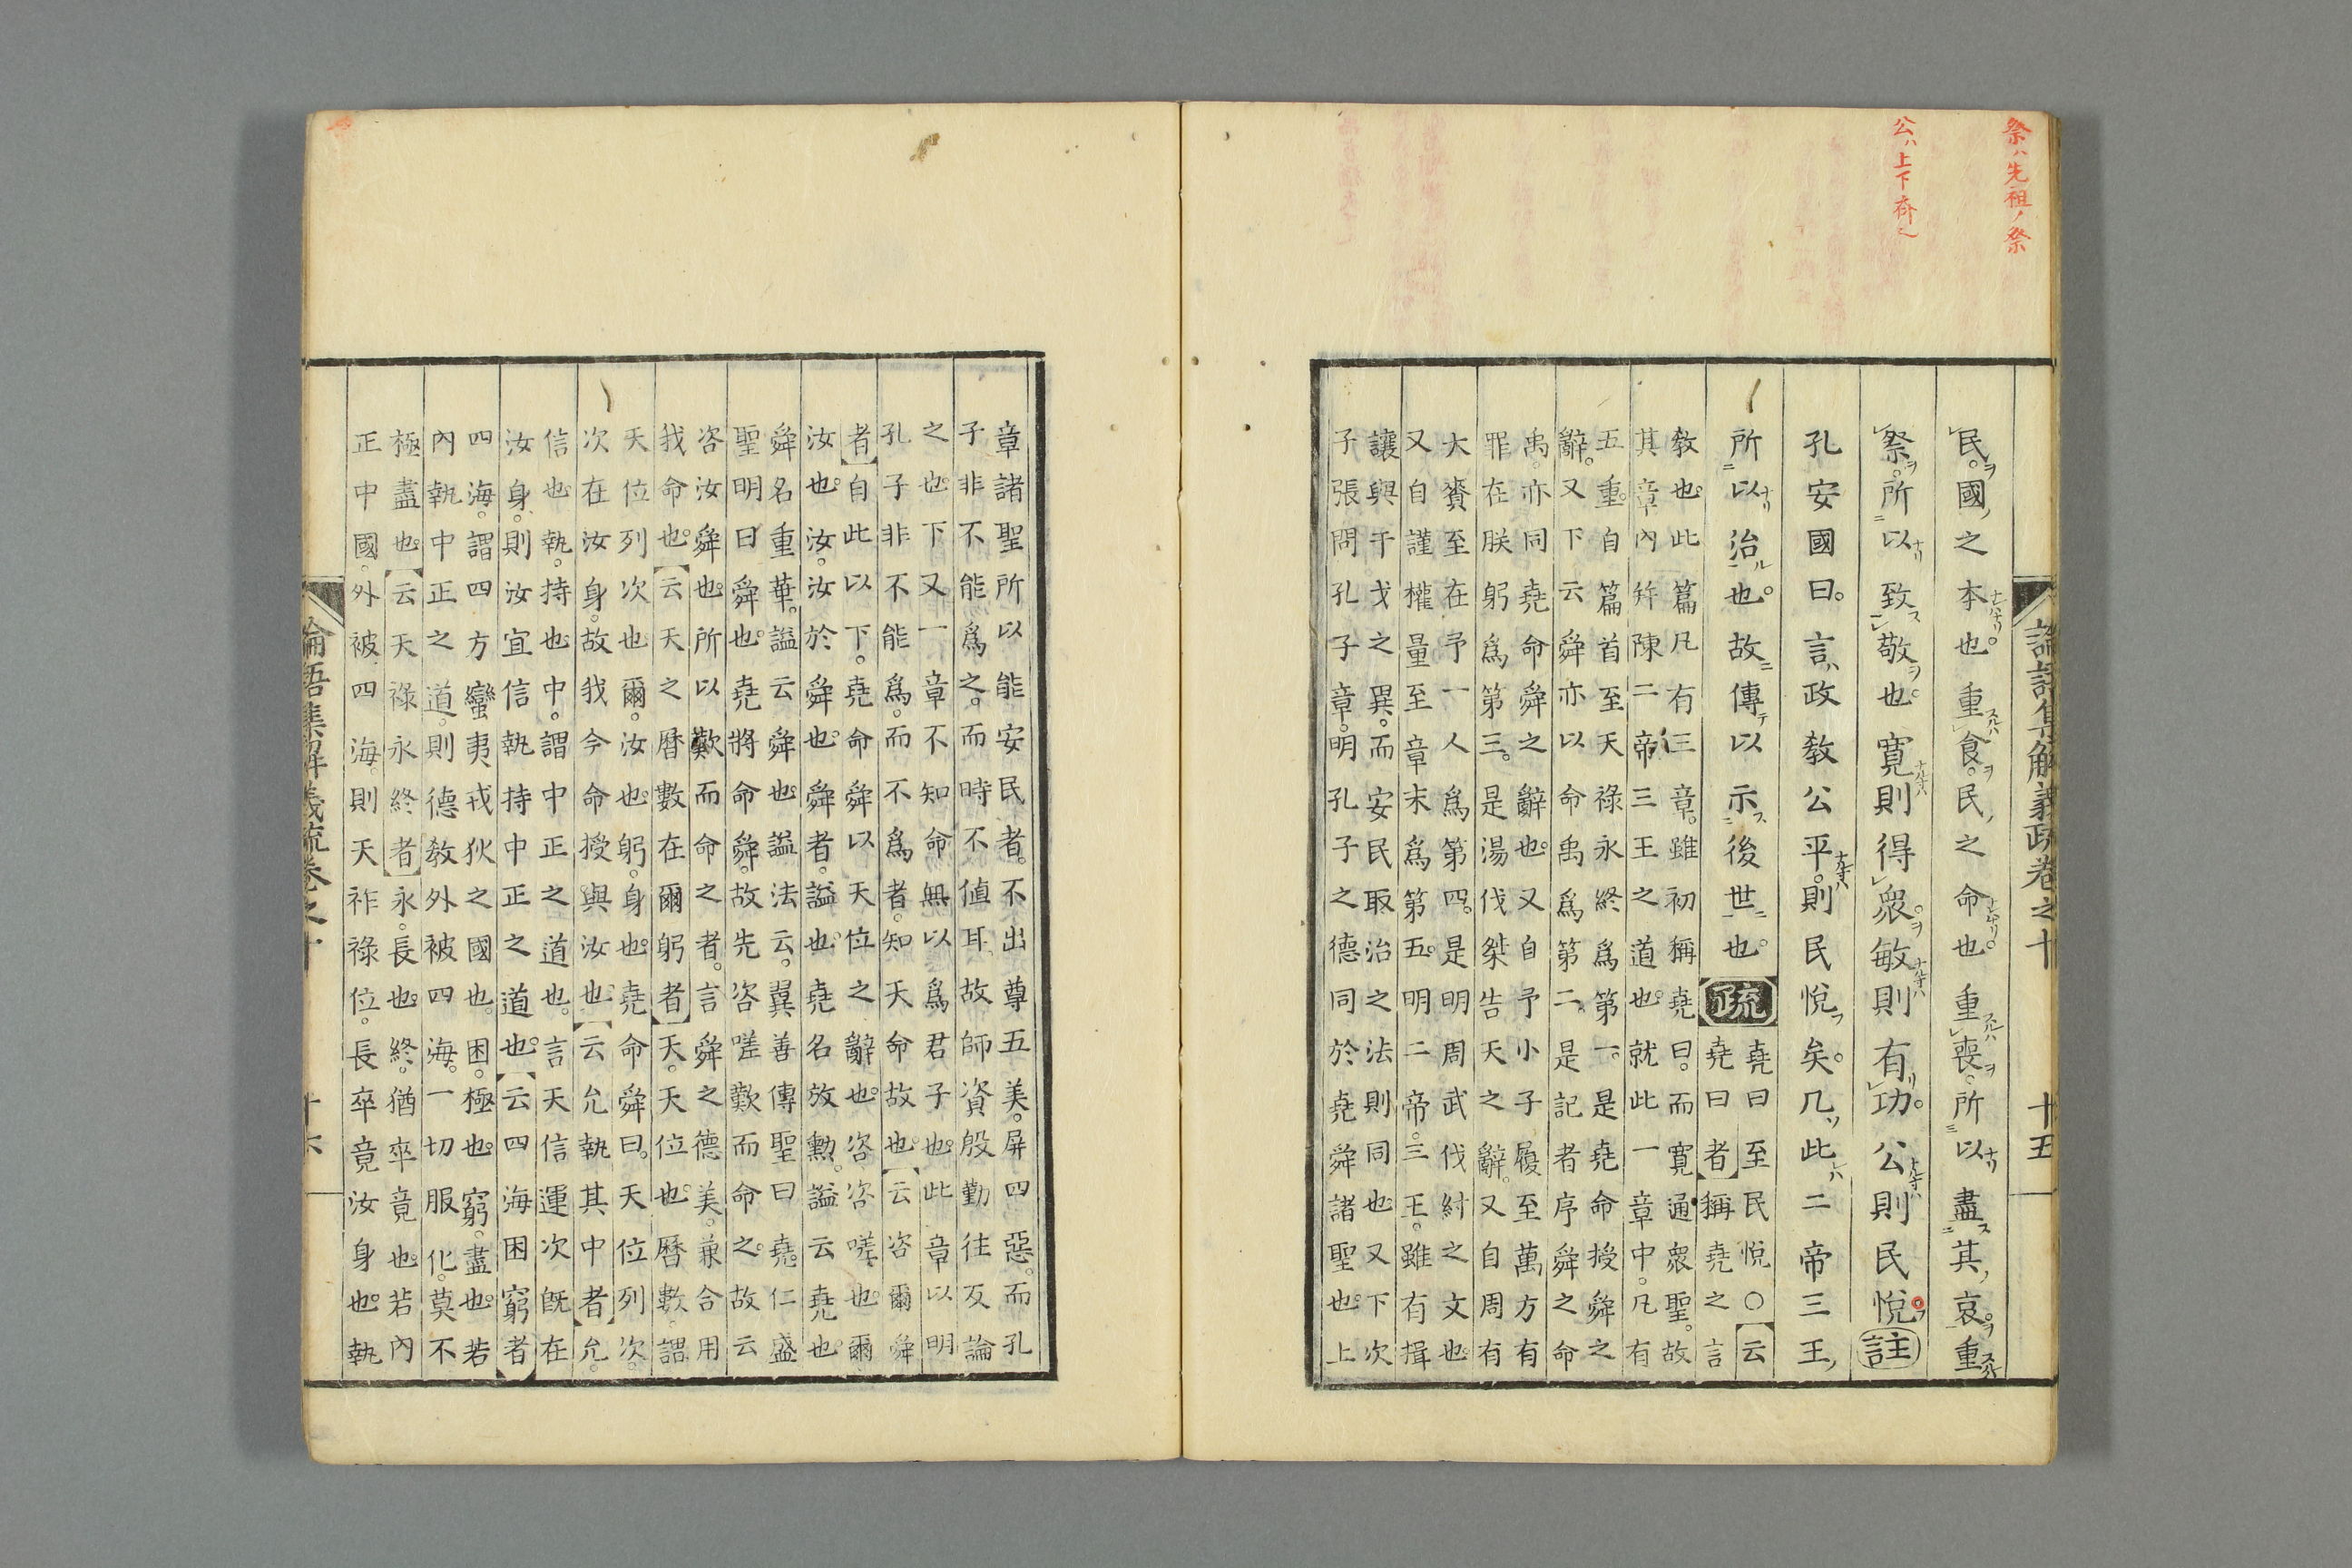 祭ハ先祖ノ祭
公ハ上下斉ク
論語集解義疏卷之十 十五
民。國之本也。重食。民之命也。重喪。所以盡其哀。重
祭。所以致敬也。寛則得衆。敏則有功。公則民悅。註
孔安國曰。言政教公平。則民悅矣。凡此二帝三王
所以治也。故傳以示後世也。疏
堯曰至民悅○云
堯曰者稱堯之言
教也。此篇凡有三章。雖初稱堯曰。而寛通衆聖。故
其章內并陳二帝三王之道也。就此一章中。凡有
五重。自篇首至天祿永終爲第一。是堯命授舜之
辭。又下云舜亦以命禹爲第二。是記者序舜之命
禹。亦同堯命舜之辭也。又自予小子履至萬方有
罪在朕躬爲第三。是湯伐桀告天之辭。又自周有
大賚至在予一人爲第四。是明周武伐紂之文也。
又自謹權量至章末爲第五。明二帝。三王。雖有揖
讓與干戈之異。而安民取治之法則同也。又下次
子張問孔子章。明孔子之德同於堯舜諸聖也。上
章諸聖所以能安民者。不出尊五美。屏四惡。而孔
子非不能爲之。而時不値耳。故師資殷勤往反論
之也。下又一章不知命。無以爲君子也。此章以明
孔子非不能爲。而不爲者。知天命故也。云咨爾舜
者自此以下。堯命舜以天位之辭也。咨咨嗟也。爾
汝也。汝。汝於舜也。舜者。謚也。堯名放勲。謚云堯也。
舜名重華。謚云舜也。謚法云。翼善傳聖曰堯。仁盛
聖明曰舜也。堯將命舜。故先咨嗟歎而命之。故云
咨汝舜也。所以歎而命之者。言舜之德美。兼合用
我命也。云天之曆數在爾躬者天。天位也。曆數。謂
天位列次也。爾。汝也。躬。身也。堯命舜曰。天位列次。
次在汝身。故我今命授與汝也。云允執其中者允。
信也。執。持也。中。謂中正之道也。言天信運次旣在
汝身。則汝宜信執持中正之道也。云四海困窮者
四海。謂四方蠻夷戎狄之國也。困。極也。窮。盡也。若
內執中正之道。則德教外被四海。一切服化。莫不
極盡也。云天祿永終者永。長也。終。猶卒竟也。若內
正中國。外被四海。則天祚祿位。長卒竟汝身也。執
論語集解義疏卷之十 十六